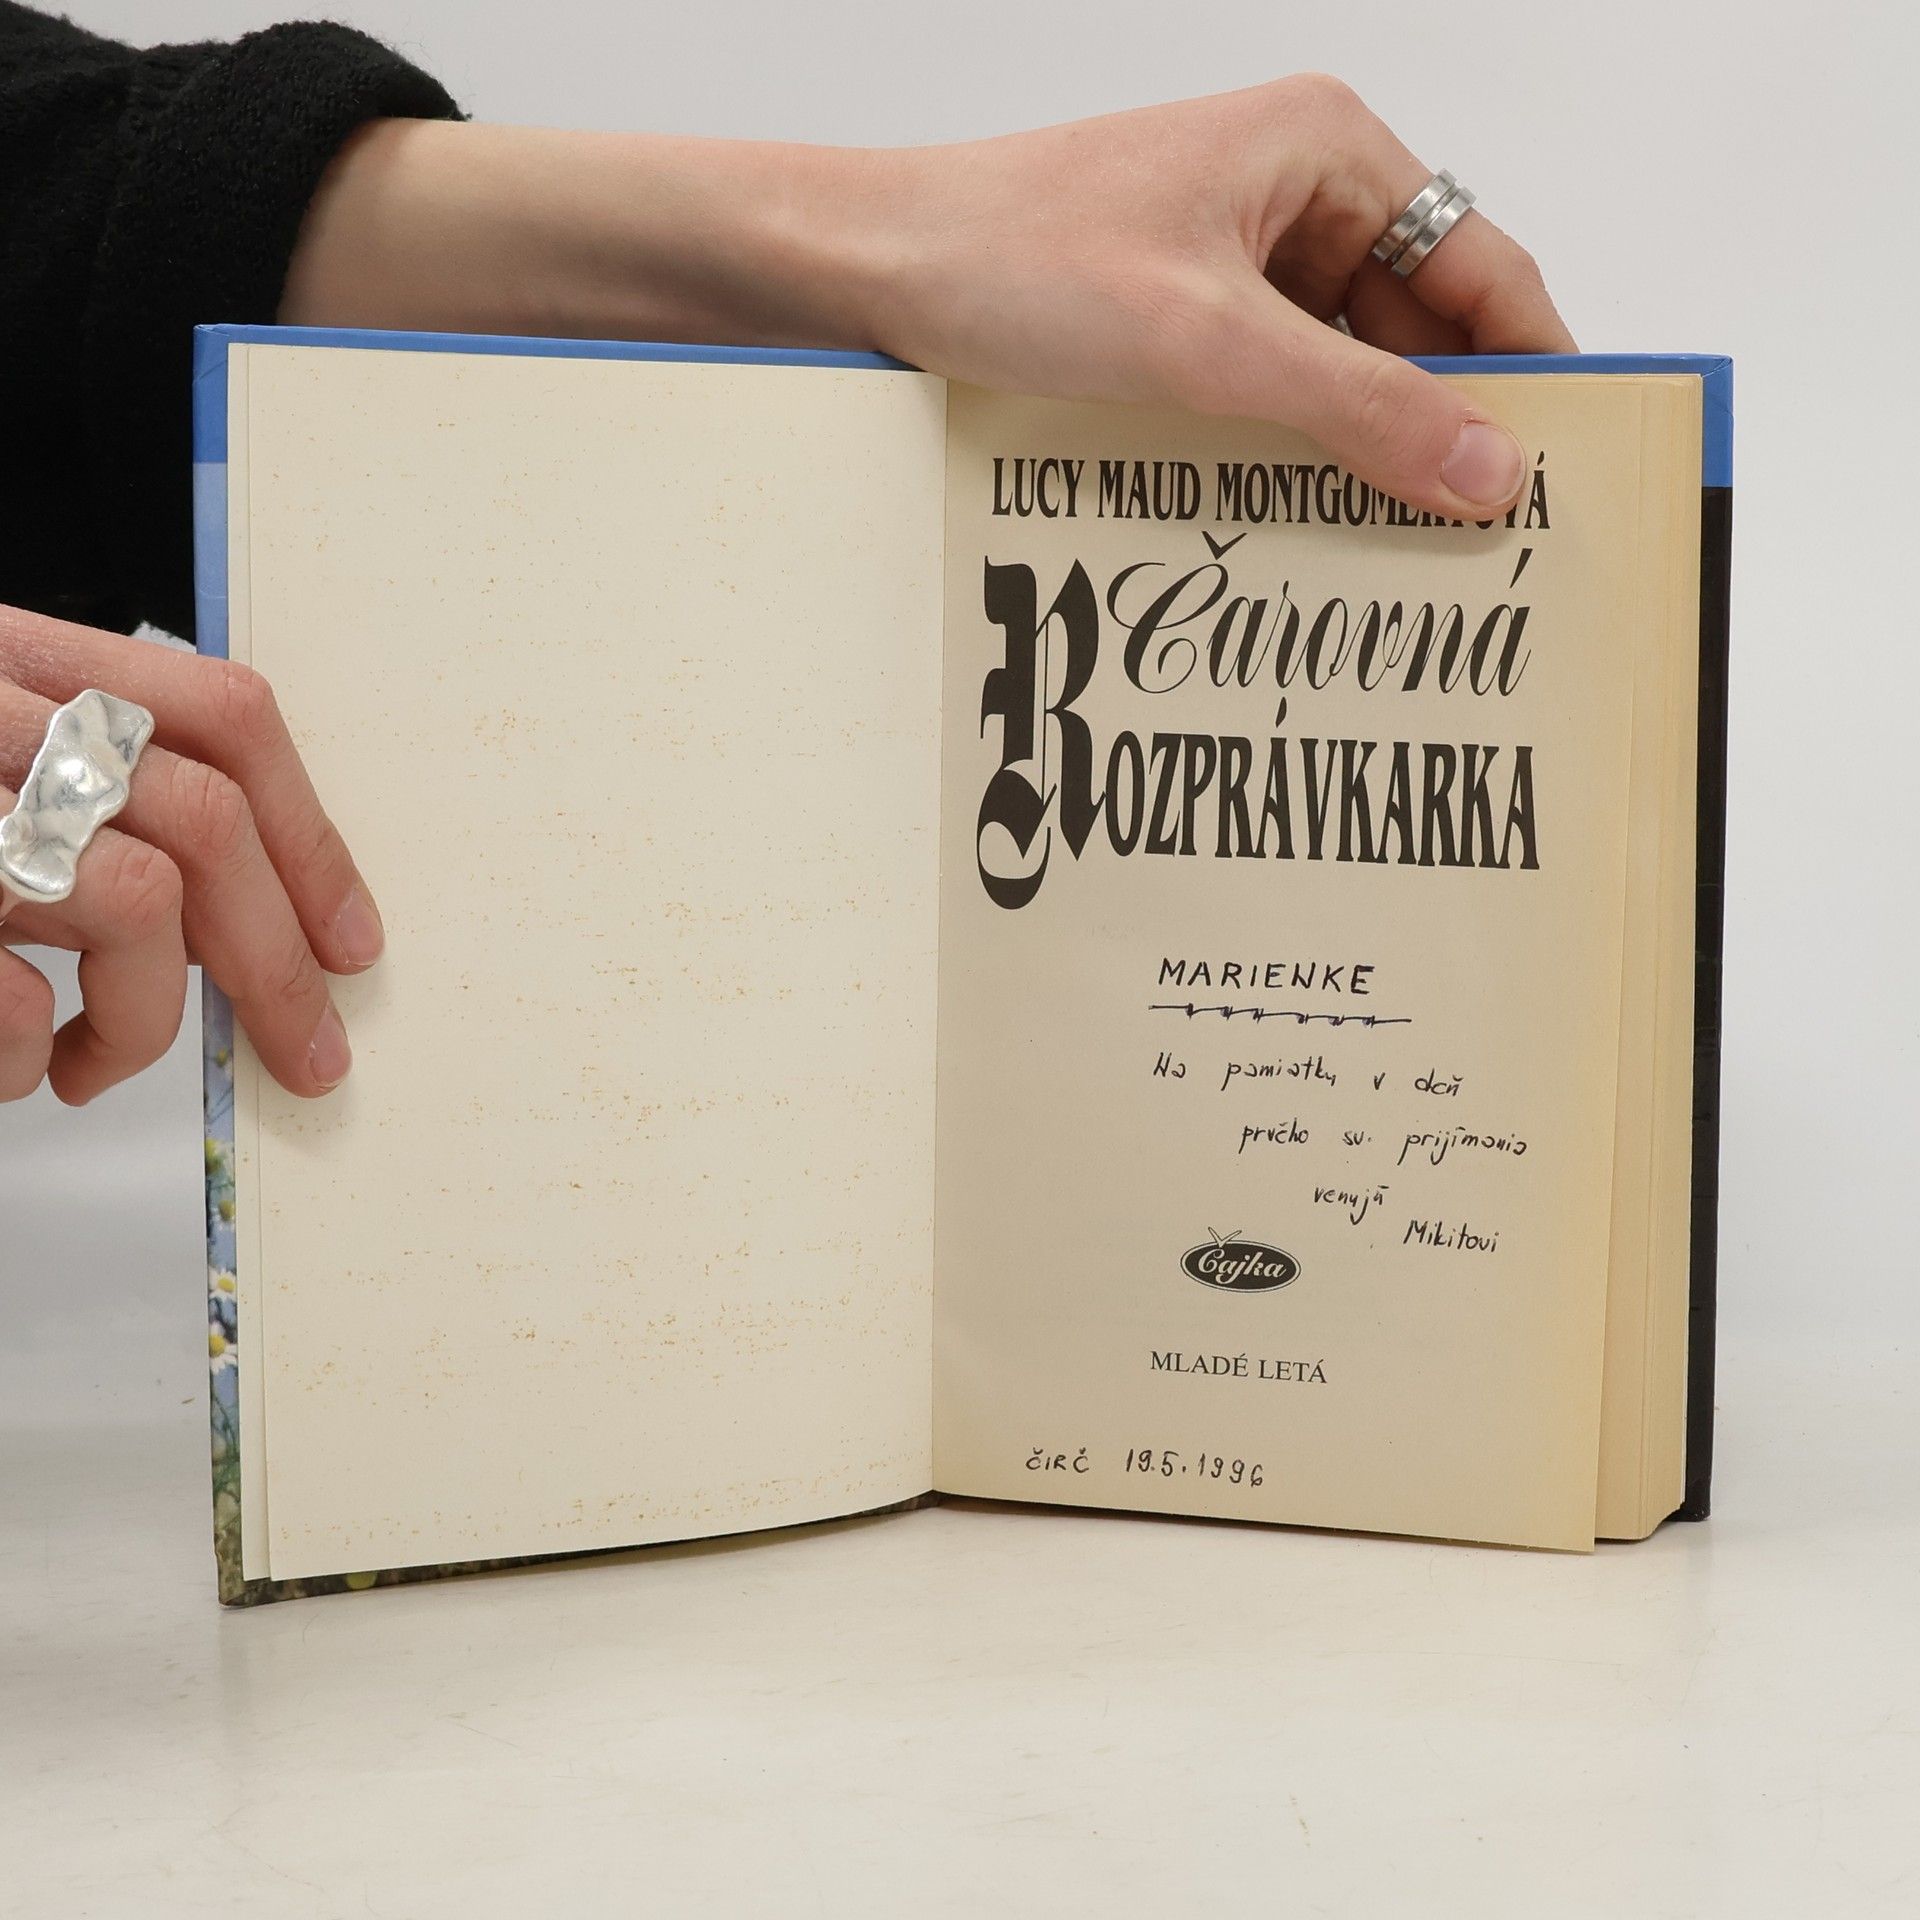 LUCY MAUD MONTGOMERYOVÁ
Čarovná
ROZPRÁVKARKA
MARIENKE
Na pamiatku v deň
prvého sv. prijímania
venujú
Mikitovi
Čajka
MLADÉ LETÁ
ČIRČ 19.5.1996